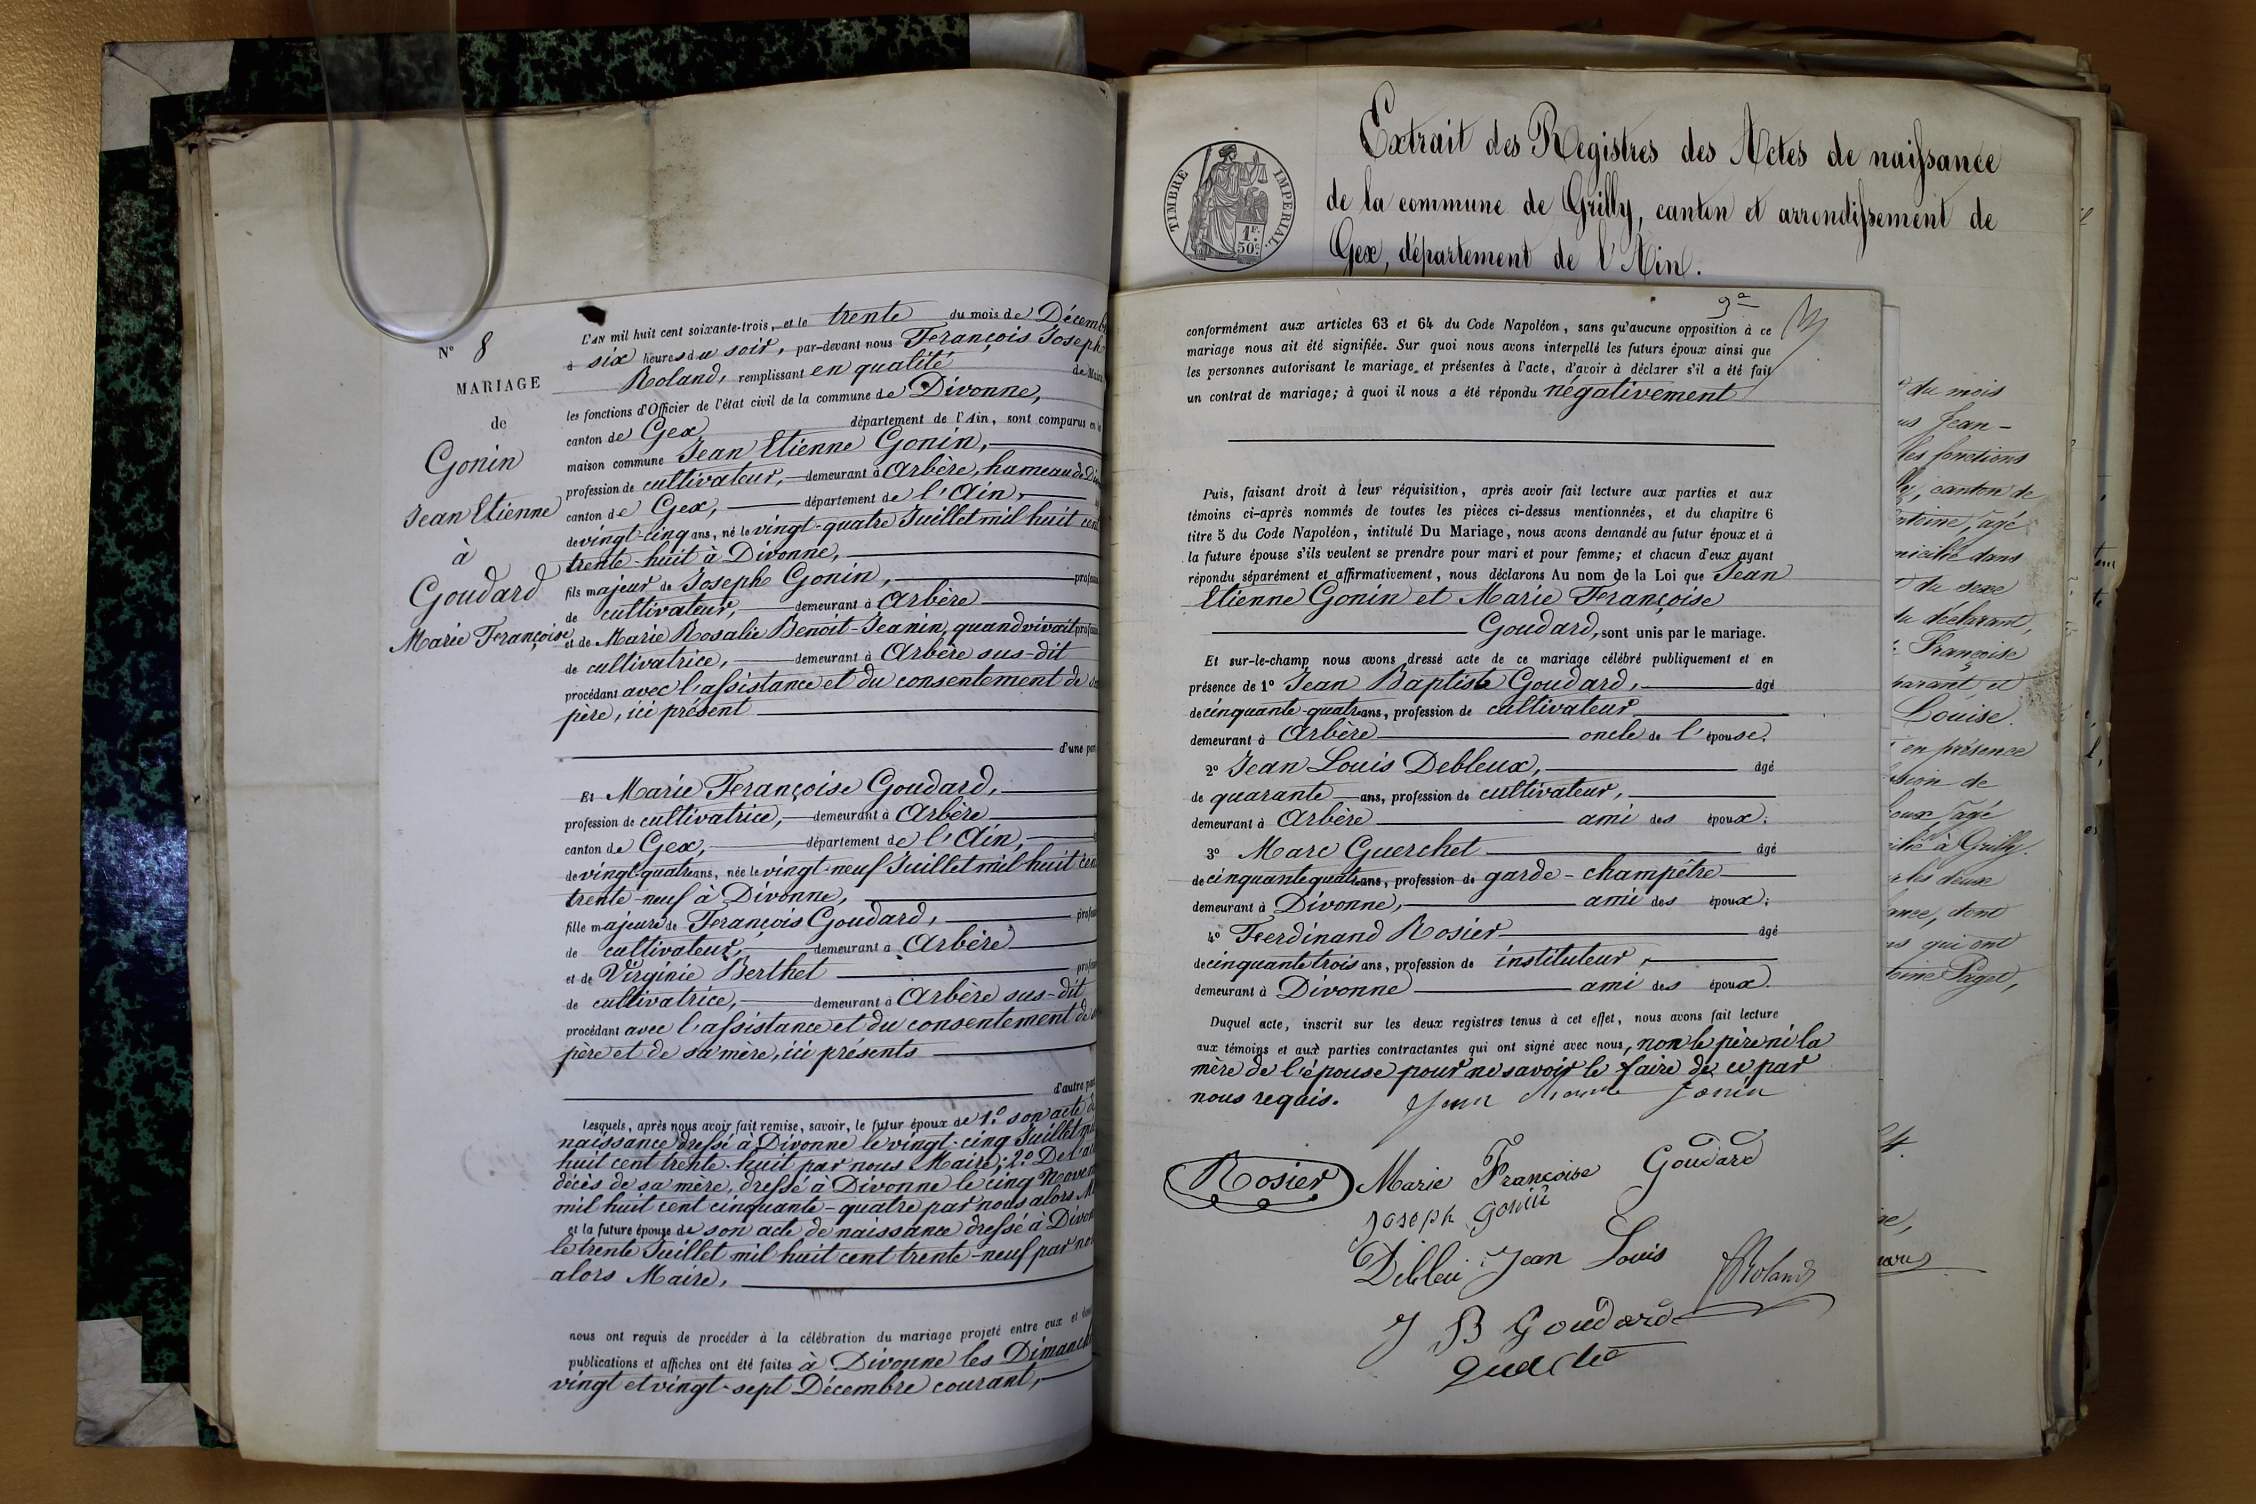 N° 8
MARIAGE
de
Gonin
Jean Etienne
à
Goudard
Marie Françoise
L'AN mil huit cent soixante-trois, et le trente du mois de Décemb
à six heures du soir, par-devant nous François Joseph
Roland, remplissant en qualité de Maire
les fonctions d'Officier de l'état civil de la commune de Divonne,
canton de Gex département de l'Ain, sont comparus en la
maison commune Jean Etienne Gonin,
profession de cultivateur, demeurant à Arbère, hameau de Div
canton de Gex, département de l'Ain,
de vingt-cinq ans, né le vingt-quatre Juillet mil huit cent
trente-huit à Divonne,
fils majeur de Joseph Gonin, profess
de cultivateur, demeurant à Arbère
et de Marie Rosalie Benoit-Jeanin, quand vivait profess
de cultivatrice, demeurant à Arbère sus-dit
procédant avec l'assistance et du consentement de
père, ici présent
d'une part
Et Marie Françoise Goudard,
profession de cultivatrice, demeurant à Arbère
canton de Gex, département de l'Ain,
de vingt-quatre ans, née le vingt-neuf Juillet mil huit cen
trente-neuf à Divonne,
fille majeure de François Goudard, profess
de cultivateur, demeurant à Arbère
et de Virginie Berthet profess
de cultivatrice, demeurant à Arbère sus-dit
procédant avec l'assistance et du consentement de
père et de sa mère, ici présents
d'autre part
Lesquels, après nous avoir fait remise, savoir, le futur époux de 1.° son acte de
naissance dressé à Divonne le vingt-cinq Juillet mil
huit cent trente-huit par nous Maire; 2.° De l'acte
décès de sa mère, dressé à Divonne le cinq Novem
mil huit cent cinquante-quatre par nous alors M
et la future épouse de son acte de naissance dressé à Divon
le trente Juillet mil huit cent trente-neuf par nou
alors Maire,
nous ont requis de procéder à la célébration du mariage projeté entre eux et dont
publications et affiches ont été faites à Divonne les Dimanch
vingt et vingt-sept Décembre courant,
Extrait des Registres des Actes de naissance
de la commune de Grilly, canton et arrondissement de
Gex, département de l'Ain.
TIMBRE IMPÉRIAL.
1F.
50c
9e
conformément aux articles 63 et 64 du Code Napoléon, sans qu'aucune opposition à ce
mariage nous ait été signifiée. Sur quoi nous avons interpellé les futurs époux ainsi que
les personnes autorisant le mariage, et présentes à l'acte, d'avoir à déclarer s'il a été fait
un contrat de mariage; à quoi il nous a été répondu négativement
Puis, faisant droit à leur réquisition, après avoir fait lecture aux parties et aux
témoins ci-après nommés de toutes les pièces ci-dessus mentionnées, et du chapitre 6
titre 5 du Code Napoléon, intitulé Du Mariage, nous avons demandé au futur époux et à
la future épouse s'ils veulent se prendre pour mari et pour femme; et chacun d'eux ayant
répondu séparément et affirmativement, nous déclarons Au nom de la Loi que Jean
Etienne Gonin et Marie Françoise
Goudard, sont unis par le mariage.
Et sur-le-champ nous avons dressé acte de ce mariage célébré publiquement et en
présence de 1° Jean Baptiste Goudard, âgé
de cinquante-quatre ans, profession de cultivateur
demeurant à Arbère oncle de l'épouse.
2° Jean Louis Debleux, âgé
de quarante ans, profession de cultivateur,
demeurant à Arbère ami des époux;
3° Marc Guerchet âgé
de cinquante quatre ans, profession de garde-champêtre
demeurant à Divonne, ami des époux;
4° Ferdinand Rosier âgé
de cinquante trois ans, profession de instituteur,
demeurant à Divonne ami des époux.
Duquel acte, inscrit sur les deux registres tenus à cet effet, nous avons fait lecture
aux témoins et aux parties contractantes qui ont signé avec nous, non le père ni la
mère de l'épouse pour ne savoir le faire de ce par
nous requis. Jean Gonin
Rosier Marie Françoise Goudard
Joseph gonin
Debleu Jean Louis Roland
J B Goudard
du mois
us Jean-
les fonctions
canton de
ntoine, agé
micilié dans
du sexe
du déclarant,
Françoise
arant et
Louise.
en présence
sion de
agé
à Grilly.
les deux
ance, dont
s qui ont
toine Paget,